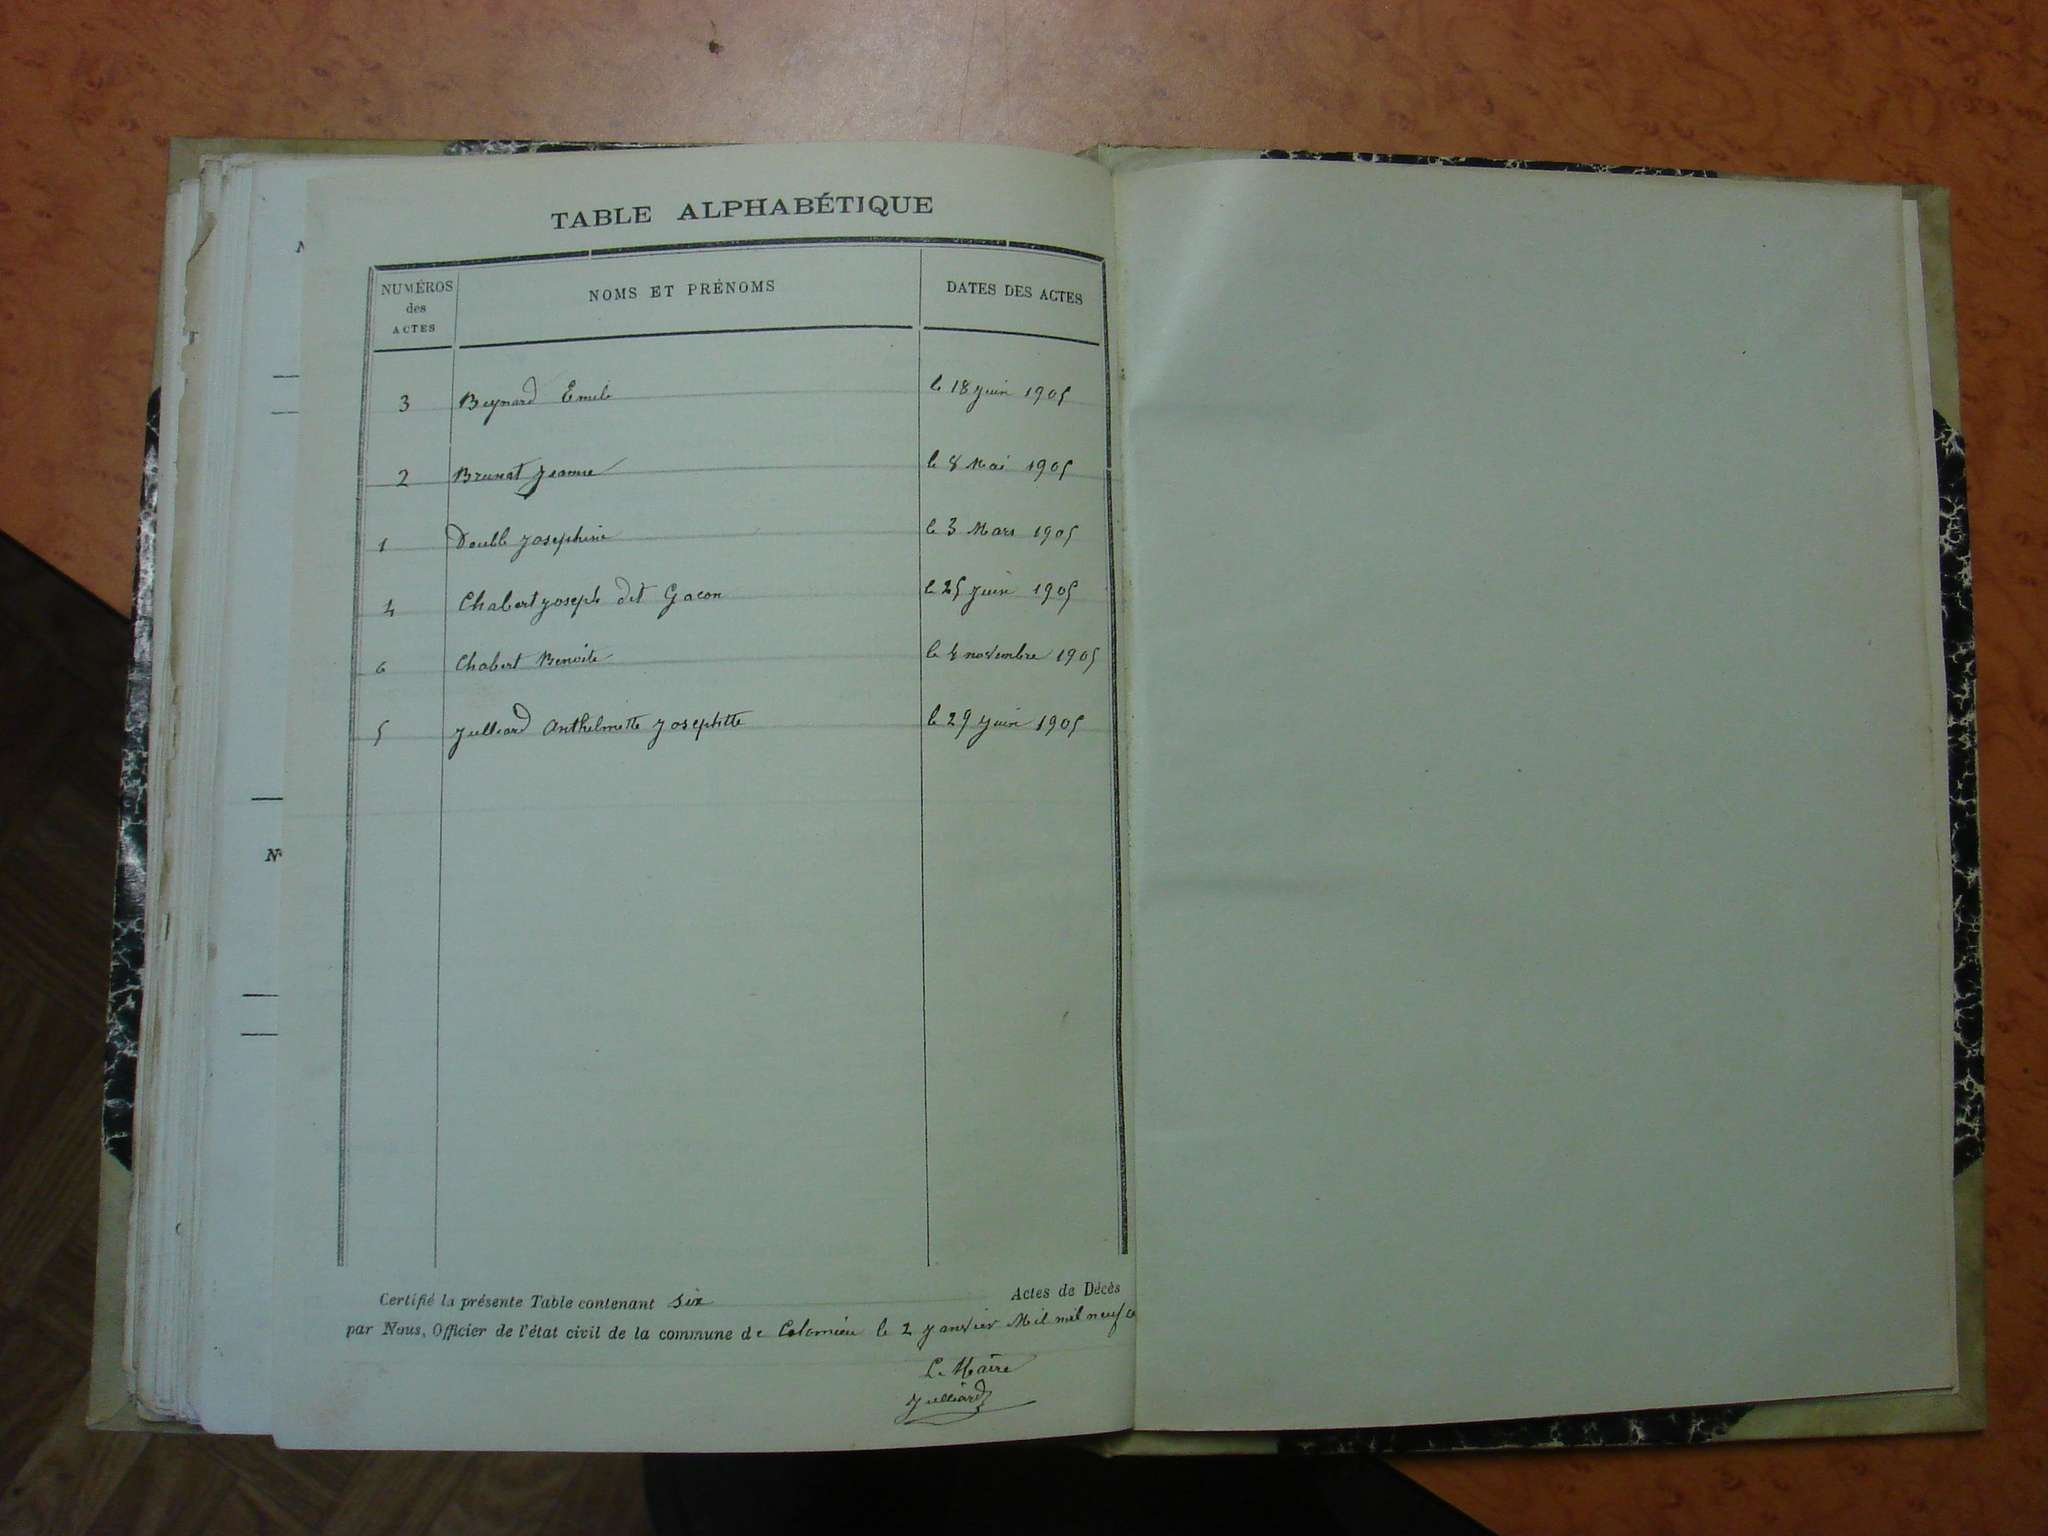 TABLE ALPHABÉTIQUE
NUMÉROS des ACTES NOMS ET PRÉNOMS DATES DES ACTES
3 Beynard Emile le 18 Juin 1905
2 Brunat Jeanne le 8 Mai 1905
1 Double Josephine le 3 Mars 1905
4 Chabert Joseph dit Gacon le 25 Juin 1905
6 Chabert Benoite le 4 novembre 1905
5 Julliard Anthelmette Josephtte le 29 Juin 1905
Certifié la présente Table contenant six Actes de Décès
par Nous, Officier de l'état civil de la commune de Colomieu le 2 Janvier Mil mil neuf
Le Maire
Julliard